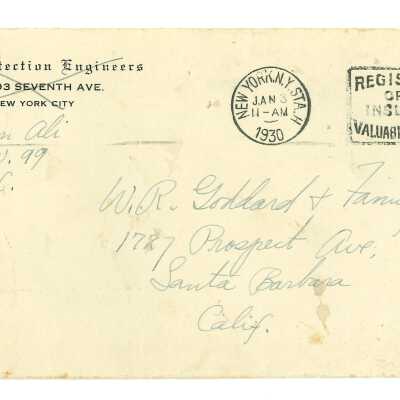 tection Engineers
03 SEVENTH AVE.
NEW YORK CITY
n Ali
. 99
NEW YORK, N.Y. STA. H
JAN 3
11-AM
1930
REGIS
OR
INSU
VALUAB
W. R. Goddard & Fami
1727 Prospect Ave,
Santa Barbara
Calif.